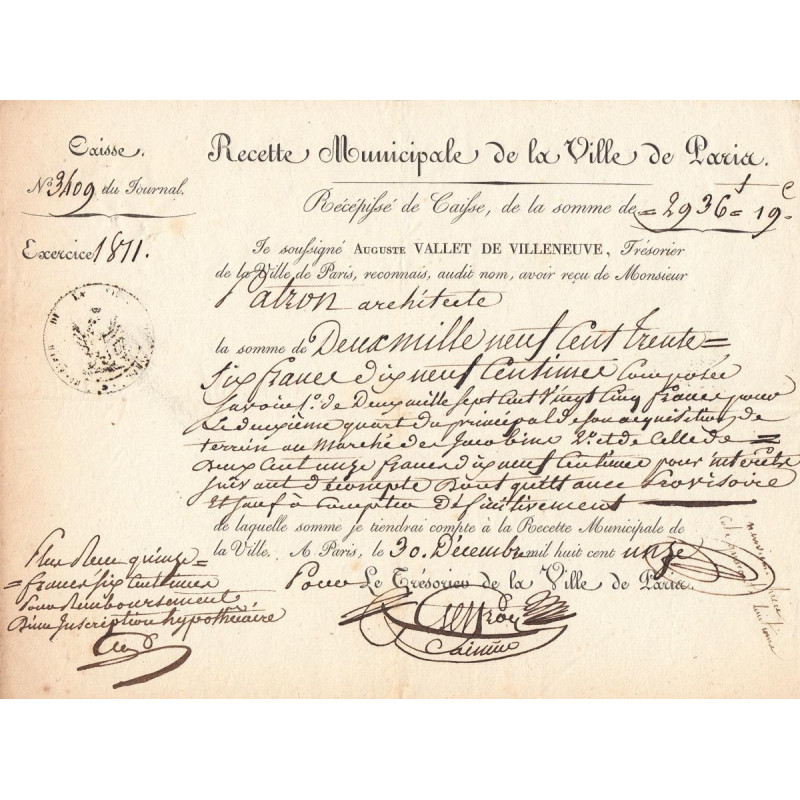 Caisse.
N.º 3409 du Journal.
Exercice 1811.
Recette Municipale de la Ville de Paris.
Récépissé de Caisse, de la somme de = 2936 f 19 c
Je soussigné AUGUSTE VALLET DE VILLENEUVE, Trésorier
de la Ville de Paris, reconnais, audit nom, avoir reçu de Monsieur
Patron architecte
la somme de Deux mille neuf Cent trente =
Six francs dix neuf Centimes Composée
Savoir 1º. de Deux mille Sept Cent Vingt Cinq francs pour
Le deuxième quart du principal de son acquisition de
terrein au Marché des Jacobins 2º. et de Celle de =
Deux Cent onze francs dix neuf Centimes pour intérêts
suivant décompte Dont quittance Provisoire
Et sauf à compter Définitivement
de laquelle somme je tiendrai compte à la Recette Municipale de
la Ville. A Paris, le 30. Décembre mil huit cent onze
Pour Le Trésorier de la Ville de Paris.
Caissier
Plus Reçu quinze =
= francs six Centimes
Pour Remboursement
D'une Inscription hypothécaire